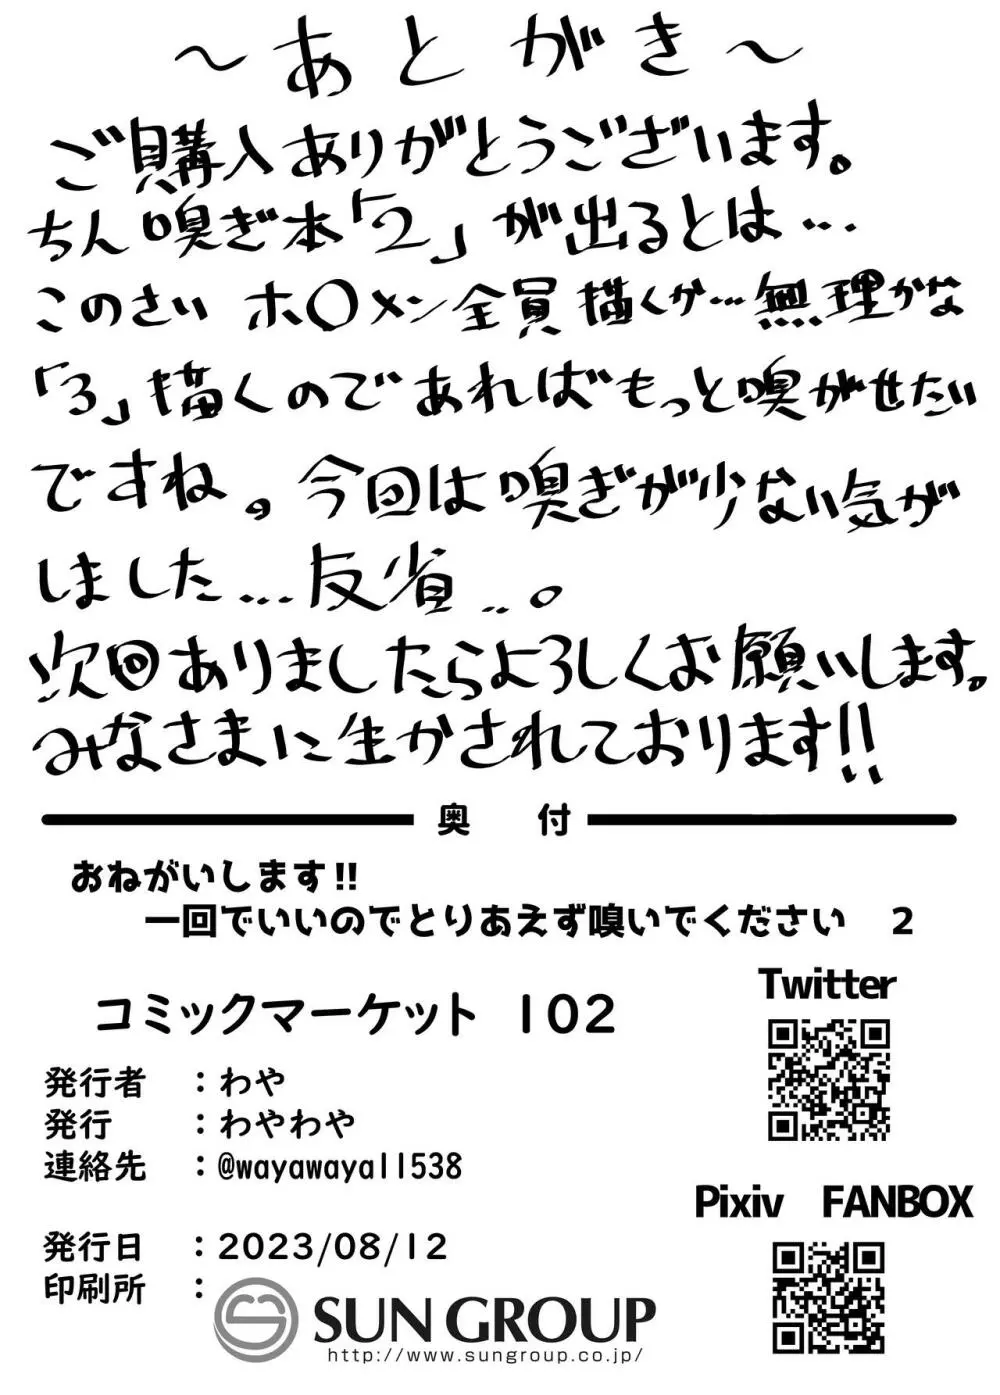 ～あとがき～
ご購入ありがとうございます。
ちん嗅ぎ本「2」が出るとは…
このさい ホ〇メン全員描くか…無理かな
「3」描くのであればもっと嗅がせたい
ですね。今回は嗅ぎが少ない気が
しました…反省…。
次回ありましたらよろしくお願いします。
みなさまに生かされております!!
奥 付
おねがいします!!
一回でいいのでとりあえず嗅いでください 2
コミックマーケット 102
発行者 ：わや
発行 ：わやわや
連絡先 ：@wayawaya11538
発行日 ：2023/08/12
印刷所 ：
SUN GROUP
http://www.sungroup.co.jp/
Twitter
Pixiv FANBOX